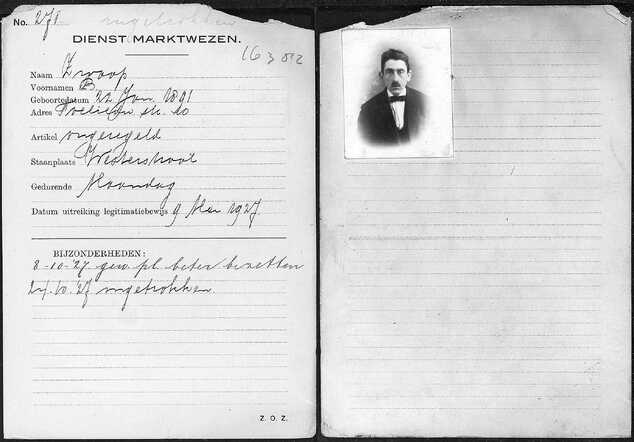 No. 271 ingetrokken
DIENST MARKTWEZEN.
Naam Zwaap
Voornamen B.
Geboortedatum 22 Jan. 1891
Adres str. 10
Artikel ongeregeld
Staanplaats Westerstraat
Gedurende Maandag
Datum uitreiking legitimatiebewijs 9 Mei 1927
BIJZONDERHEDEN:
8-10-'27 gew. pl. beter bezetten
24.10.'27 ingetrokken
Z. O. Z.